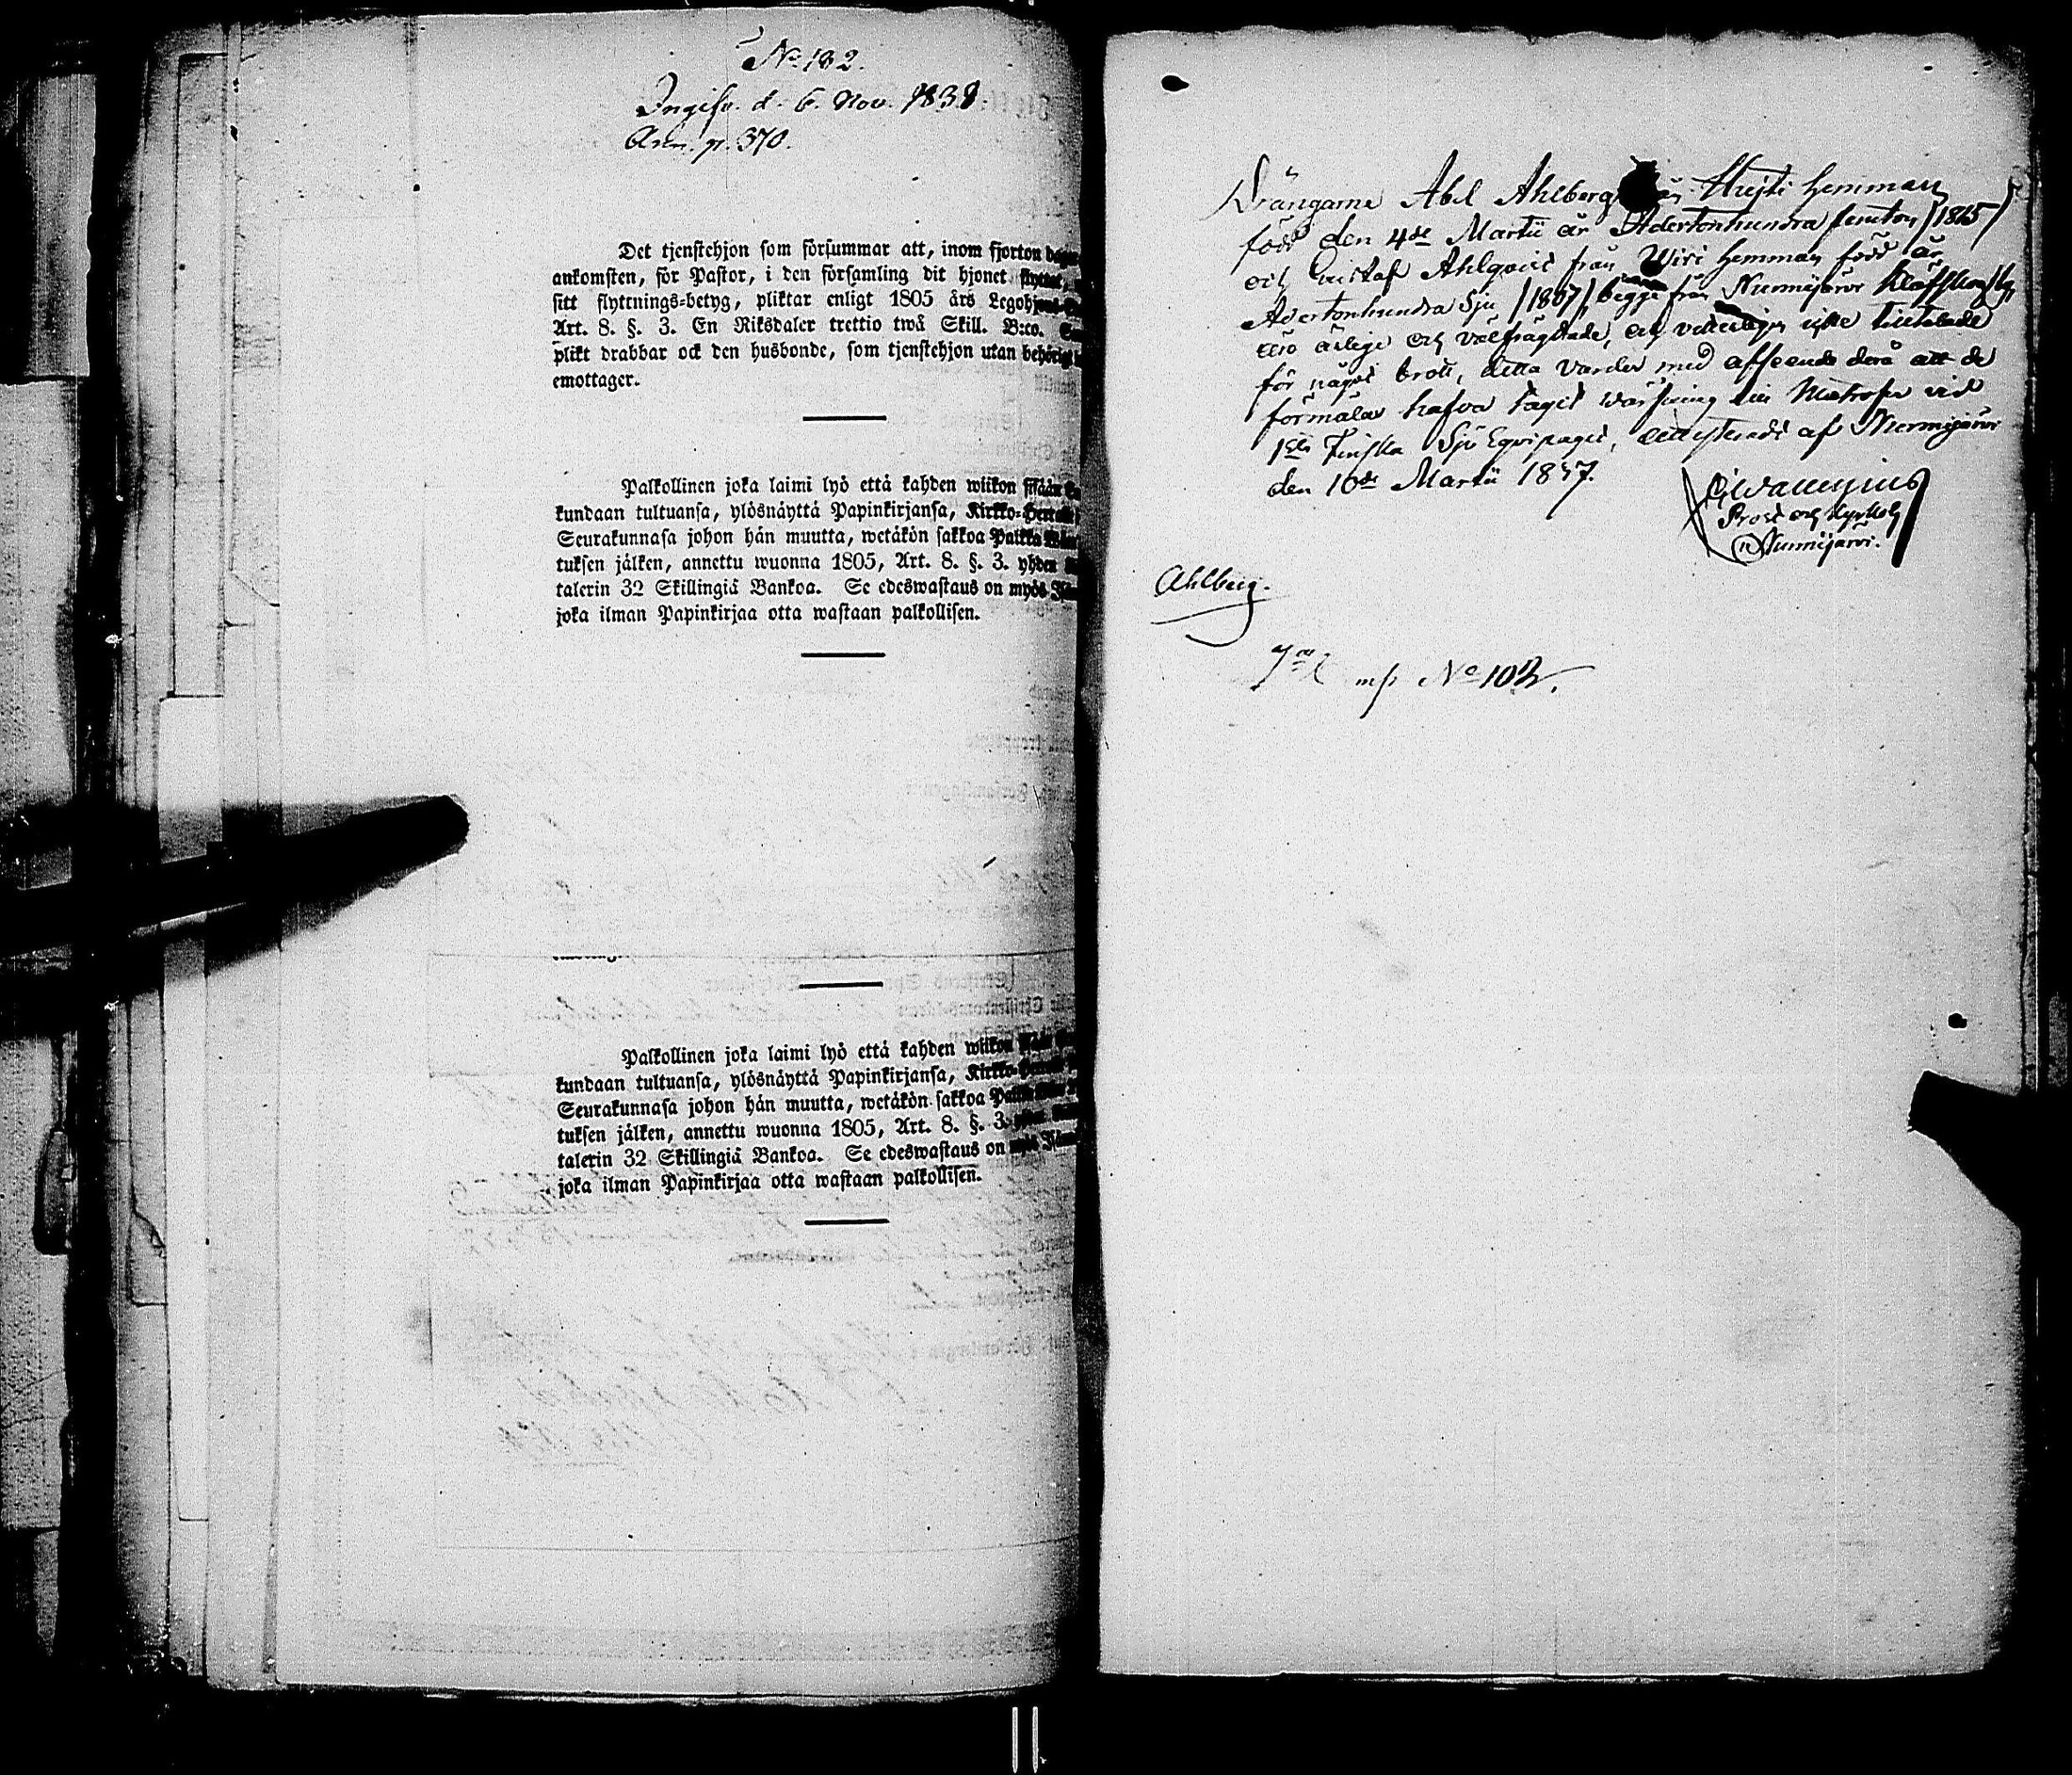 No 182.
Ingifv. d. 6. Nov. 1838.
Ann. p. 370.
Det tjenstehjon som försummar att, inom fjorton dagar
ankomsten, för Pastor, i den församling dit hjonet flyttat,
sitt flyttnings-betyg, pliktar enligt 1805 års Legohjons-
Art. 8. §. 3. En Riksdaler trettio två Skill. B:co.
plikt drabbar ock den husbonde, som tjenstehjon utan behörigt
emottager.
Palkollinen joka laimi lyö että kahden wiikon sisään
kundaan tultuansa, ylösnäyttä Papinkirjansa, Kirkko-Herralle
Seurakunnasa johon hän muutta, wetäkön sakkoa Palkka
tuksen jälken, annettu wuonna 1805, Art. 8. §. 3. yhden
talerin 32 Skillingiä Bankoa. Se edeswastaus on myös
joka ilman Papinkirjaa otta wastaan palkollisen.
Palkollinen joka laimi lyö että kahden wiikon
kundaan tultuansa, ylösnäyttä Papinkirjansa, Kirkko-Herralle
Seurakunnasa johon hän muutta, wetäkön sakkoa
tuksen jälken, annettu wuonna 1805, Art. 8. §. 3.
talerin 32 Skillingiä Bankoa. Se edeswastaus on myös
joka ilman Papinkirjaa otta wastaan palkollisen.
Drängarne Abel Ahlberg Hemman
född den 4de Martii år Adertonhundra femton /1815/
och Gustaf Ahlqvist från Wiri Hemman född år
Adertonhundra Sju /1807/, begge från Nurmijärvi Kläfskog by,
äro ärlige och välfrägdade, och vetterligen icke tilltalade
för något brott, detta varder med afseende derå att de
förmälas hafva tagit värfning till Matroser vid
1sta Finska Sjö Equipaget, attesteradt af Nurmijärvi
den 10de Martii 1837.
Prost och Kyrkoh.
i Nurmijärvi.
Ahlberg.
No 102.